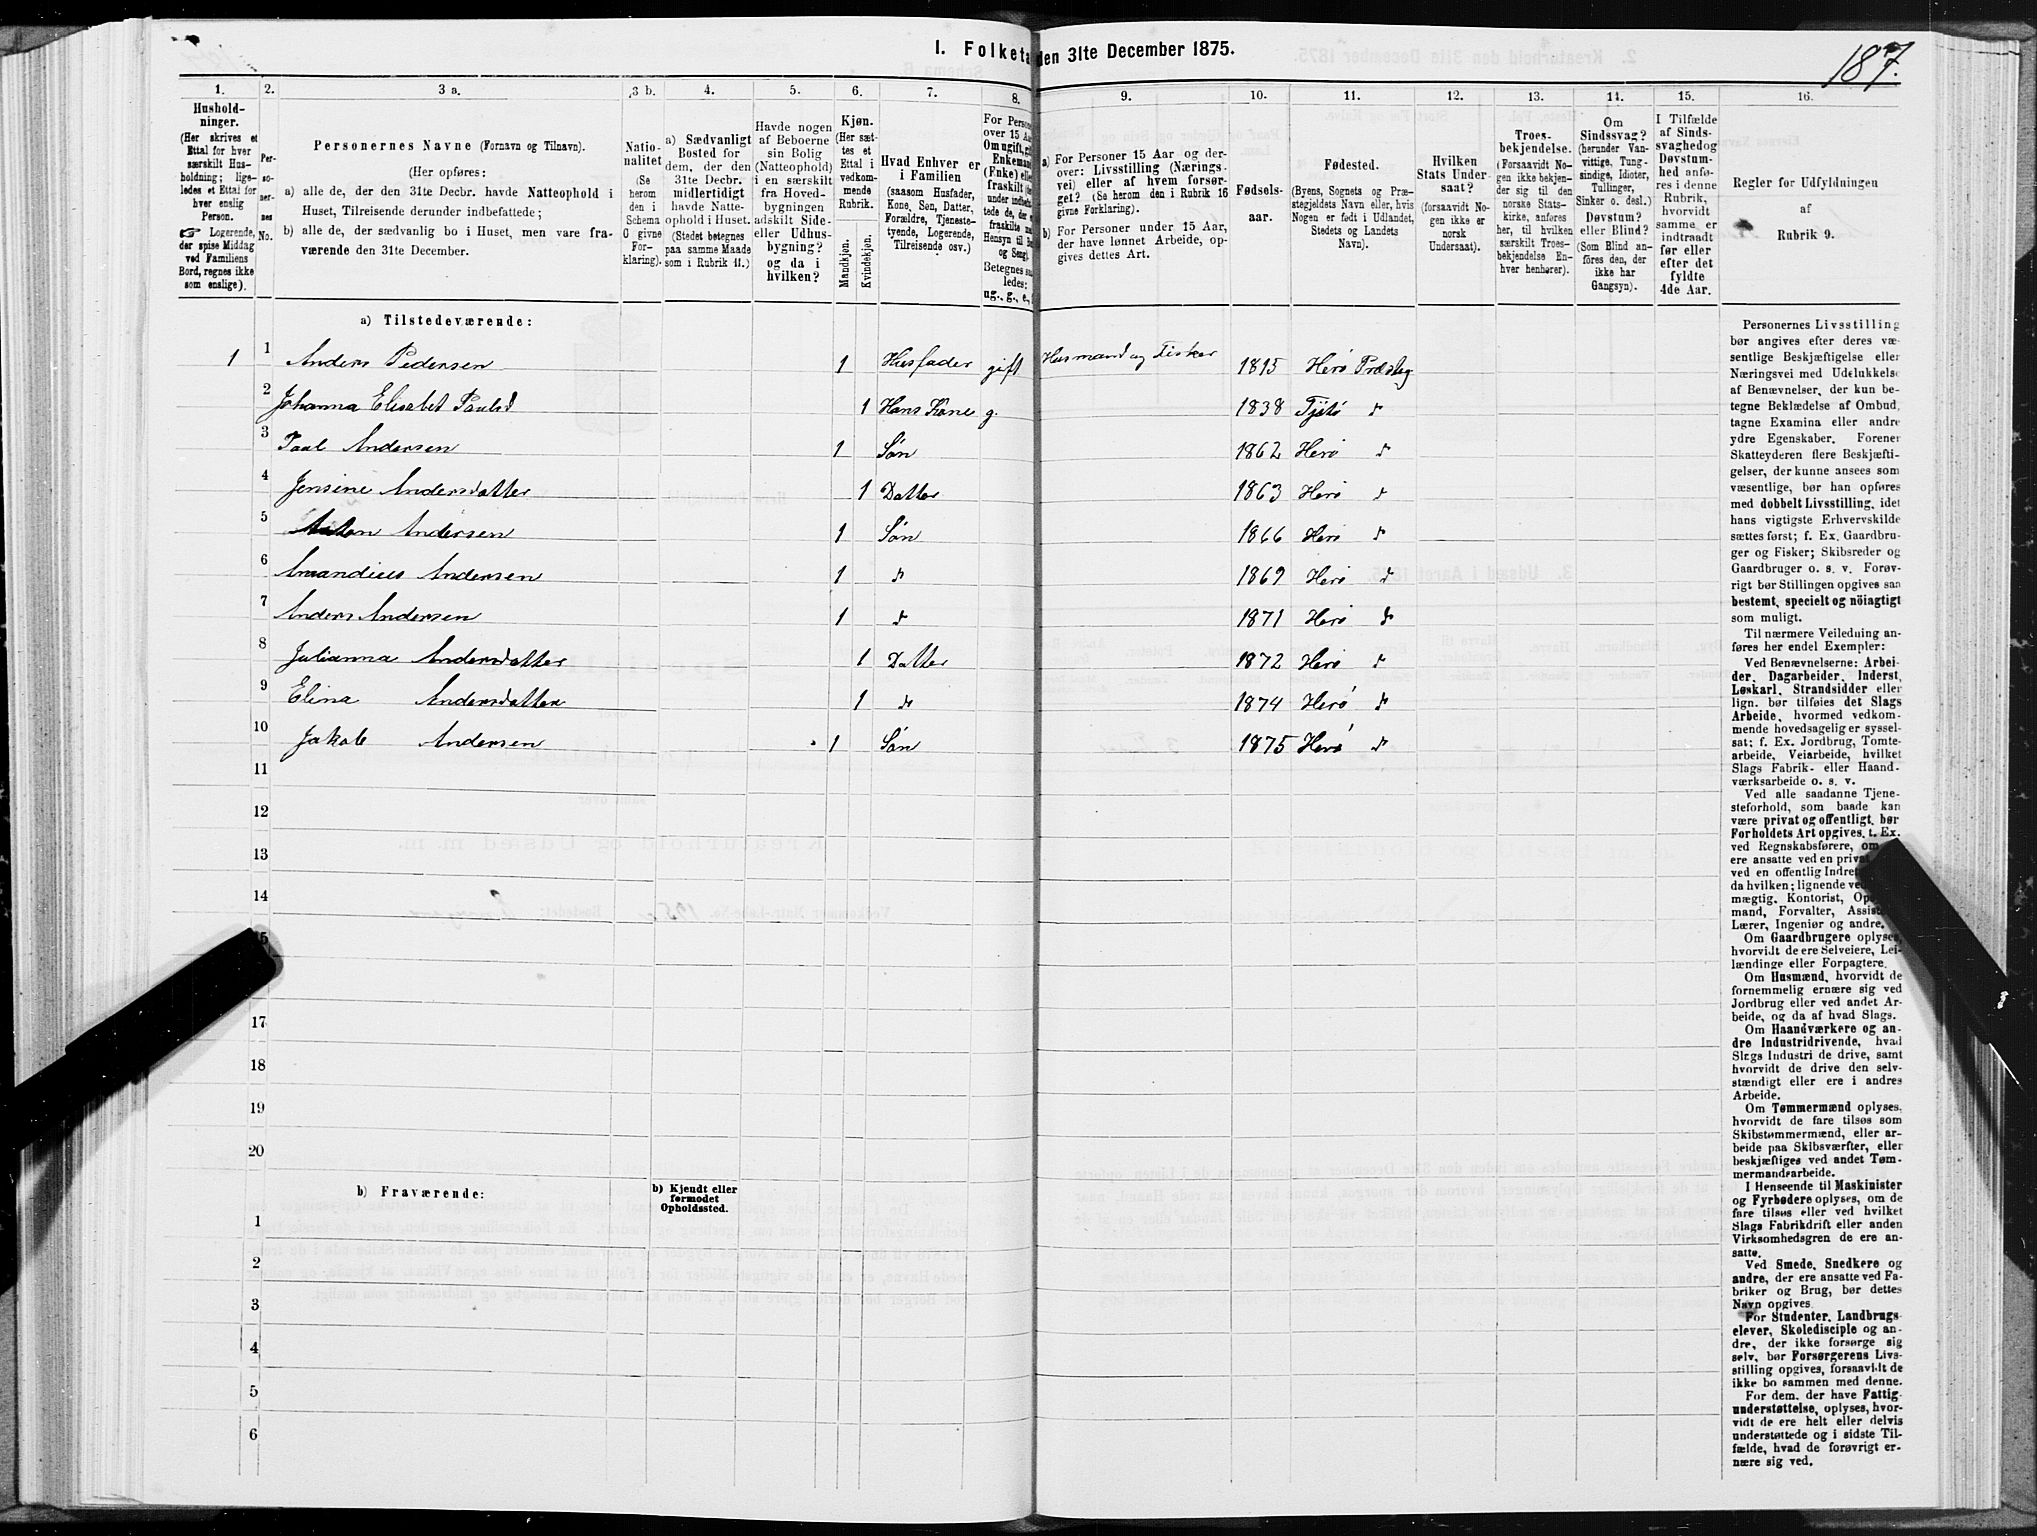 I. Folketæ den 31te December 1875.
187.
1.
Hushold-
ninger.
(Her skrives et
Ettal for hver
særskilt Hus-
holdning; lige-
ledes et Ettal for
hver enslig
Person.
☞ Logerende,
der spise Middag
ved Familiens
Bord, regnes ikke
som enslige).
2.
Per-
so-
ner-
nes
No.
3 a.
Personernes Navne (Fornavn og Tilnavn).
(Her opføres:
a) alle de, der den 31te Decbr. havde Natteophold i
Huset, Tilreisende derunder indbefattede;
b) alle de, der sædvanlig bo i Huset, men vare fra-
værende den 31te December.
3 b.
Natio-
nalitet
(Se
herom
den i
Schema
C givne
For-
klaring).
4.
a) Sædvanligt
Bosted for
dem, der den
31te Decbr.
midlertidigt
havde Natte-
ophold i Huset.
(Stedet betegnes
paa samme Maade
som i Rubrik 11.)
5.
Havde nogen
af Beboerne
sin Bolig
(Natteophold)
i en særskilt
fra Hoved-
bygningen
adskilt Side-
eller Udhus-
bygning?
og da i
hvilken?
6.
Kjøn.
(Her sæt-
tes et
Ettal i
vedkom-
mende
Rubrik.
Mandkjøn.
Kvindekjøn.
7.
Hvad Enhver er
i Familien
(saasom Husfader,
Kone, Søn, Datter,
Forældre, Tjeneste-
tyende, Logerende,
Tilreisende osv.)
8.
For Persone
over 15 Aa
Om ugift, gi
Enkeman
(Enke) elle
fraskilt
Betegnes s
ledes:
ug., g., e.,
9.
a) For Personer 15 Aar og der-
over: Livsstilling (Nærings-
vei) eller af hvem forsør-
get? (Se herom den i Rubrik 16
givne Forklaring).
b) For Personer under 15 Aar,
der have lønnet Arbeide, op-
gives dettes Art.
10.
Fødsels-
aar.
11.
Fødested.
(Byens, Sognets og Præ-
stegjeldets Navn eller, hvis
Nogen er født i Udlandet,
Stedets og Landets
Navn).
12.
Hvilken
Stats Under-
saat?
(forsaavidt No-
gen ikke er
norsk
Undersaat).
13.
Troes-
bekjendelse.
(Forsaavidt No-
gen ikke bekjen-
der sig til den
norske Stats-
kirke, anføres
her, til hvilken
særskilt Troes-
bekjendelse En-
hver henhører).
14.
Om
Sindssvag?
(herunder Van-
vittige, Tung-
sindige, Idioter,
Tullinger,
Sinker o. desl.)
Døvstum?
eller Blind?
(Som Blind an-
føres den, der
ikke har
Gangsyn).
15.
I Tilfælde
af Sinds-
svaghed og
Døvstum-
hed anfø-
res i denne
Rubrik,
hvorvidt
samme er
indtraadt
før eller
efter det
fyldte
4de Aar.
16.
Regler for Udfyldningen
af
Rubrik 9.
a) Tilstedeværende:
1 1 Anders Pedersen 1 Husfader gift Husmand og Fisker 1815 Herø Præsteg
2 Johanna Elisabet Paulsd 1 Hans Kone g. 1838 Tjøtø d
3 Paal Andersen 1 Søn 1862 Herø d
4 Jensine Andersdatter 1 Datter 1863 Herø d
5 Anton Andersen 1 Søn 1866 Herø d
6 Amandius Andersen 1 d 1869 Herø d
7 Anders Andersen 1 d 1871 Herø d
8 Julianna Andersdatter 1 Datter 1872 Herø d
9 Elina Andersdatter 1 d 1874 Herø d
10 Jakob Andersen 1 Søn 1875 Herø d
11
12
13
14
15
17
18
19
20
b) Fraværende:
b) Kjendt eller
formodet
Opholdssted.
1
2
3
4
5
6
Personernes Livsstilling
bør angives efter deres væ-
sentlige Beskjæftigelse eller
Næringsvei med Udelukkelse
af Benævnelser, der kun be-
tegne Beklædelse af Ombud,
tagne Examina eller andre
ydre Egenskaber. Forener
Skatteyderen flere Beskjæfti-
gelser, der kunne ansees som
væsentlige, bør han opføres
med dobbelt Livsstilling, idet
hans vigtigste Erhvervskilde
sættes først; f. Ex. Gaardbru-
ger og Fisker; Skibsreder og
Gaardbruger o. s. v. Forøv-
rigt bør Stillingen opgives saa
bestemt, specielt og nöiagtigt
som muligt.
Til nærmere Veiledning an-
føres her endel Exempler:
Ved Benævnelserne: Arbei-
der, Dagarbeider, Inderst,
Løskarl, Strandsidder eller
lign. bør tilføies det Slags
Arbeide, hvormed vedkom-
mende hovedsagelig er syssel-
sat; f. Ex. Jordbrug, Tomte-
arbeide, Veiarbeide, hvilket
Slags Fabrik- eller Haand-
værksarbeide o. s. v.
Ved alle saadanne Tjene-
steforhold, som baade kan
være privat og offentligt, bør
Forholdets Art opgives. t. Ex.
ved Regnskabsførere, om
ere ansatte ved en privat
ved en offentlig Indret
da hvilken; lignende ved
mægtig, Kontorist, Op
mand, Forvalter, Assist
Lærer, Ingeniør og andre.
Om Gaardbrugere oplyses,
hvorvidt de ere Selveiere, Lei-
lændinge eller Forpagtere.
Om Husmænd, hvorvidt de
fornemmelig ernære sig ved
Jordbrug eller ved andet Ar-
beide, og da af hvad Slags.
Om Haandværkere og an-
dre Industridrivende, hvad
Slags Industri de drive, samt
hvorvidt de drive den selv-
stændigt eller ere i andres
Arbeide.
Om Tømmermænd oplyses,
hvorvidt de fare tilsøs som
Skibstømmermænd, eller ar-
beide paa Skibsværfter, eller
beskjæftiges ved andet Tøm-
mermandsarbeide.
I Henseende til Maskinister
og Fyrbødere oplyses, om de
fare tilsøs eller ved hvilket
Slags Fabrikdrift eller anden
Virksomhedsgren de ere an-
satte.
Ved Smede, Snedkere og
andre, der ere ansatte ved Fa-
briker og Brug, bør dettes
Navn opgives.
For Studenter, Landbrugs-
elever, Skoledisciple og an-
dre, der ikke forsørge sig
selv, bør Forsørgerens Livs-
stilling opgives, forsaavidt de
ikke bo sammen med denne.
For dem, der have Fattig-
understøttelse, oplyses, hvor-
vidt de ere helt eller delvis
understøttede og i sidste Til-
fælde, hvad de forøvrigt er-
nære sig ved.